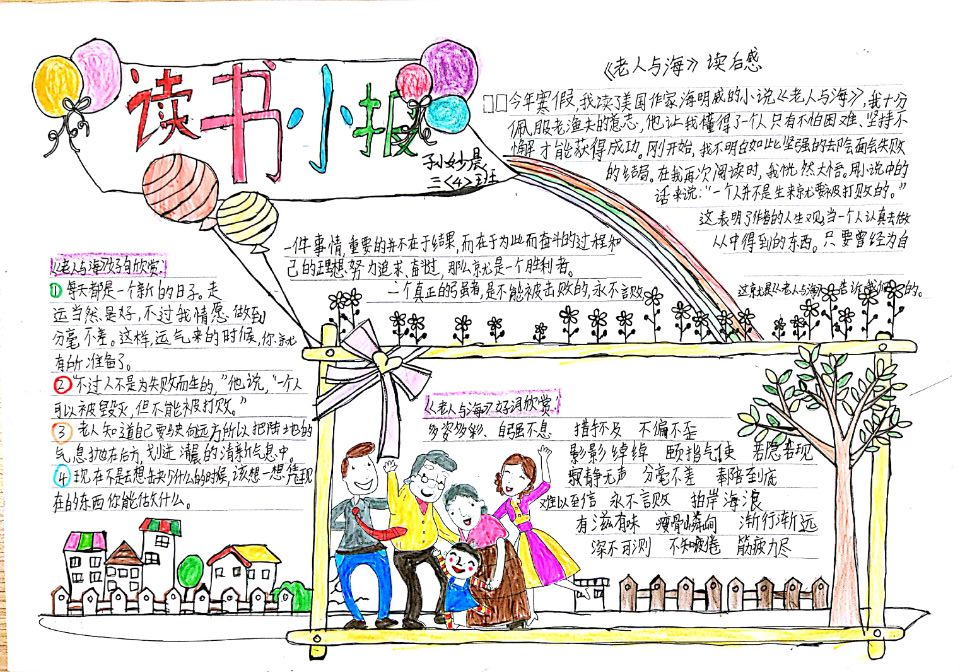 读书小报
孙妙晨
三<4>班
《老人与海》读后感
今年寒假,我读了美国作家海明威的小说《老人与海》,我十分
佩服老渔夫的意志,他让我懂得了一个人只有不怕困难、坚持不
懈才能获得成功。刚开始,我不明白如此坚强的去除面会失败
的结局。在我再次阅读时,我恍然大悟。用小说中的
话来说:“一个人并不是生来就要被打败的。”
这表明了作者的人生观,当一个人认真去做
一件事情,重要的并不在于结果,而在于为此而奋斗的过程和
从中得到的东西。只要曾经为自
己的理想努力追求、奋斗过,那么就是一个胜利者。
一个真正的强者,是不能被击败的,永不言败
这就是《老人与海》告诉我们的。
《老人与海》好句欣赏:
① 每天都是一个新的日子。走
运当然是好,不过我情愿做到
分毫不差。这样,运气来的时候,你就
有所准备了。
② “不过人不是为失败而生的,”他说,“一个人
可以被毁灭,但不能被打败。”
③ 老人知道自己要驶向远方所以把陆地的
气息抛在后方,划进清晨的清新气息中。
④ 现在不是想缺少什么的时候,该想一想凭现
在的东西你能做什么。
《老人与海》好词欣赏:
多姿多彩、自强不息 措手不及 不偏不歪
影影绰绰 颐指气使 若隐若现
飘静无声 分毫不差 奉陪到底
难以至信 永不言败 拍岸海浪
有滋有味 瘦骨嶙峋 渐行渐远
深不可测 不知疲倦 筋疲力尽